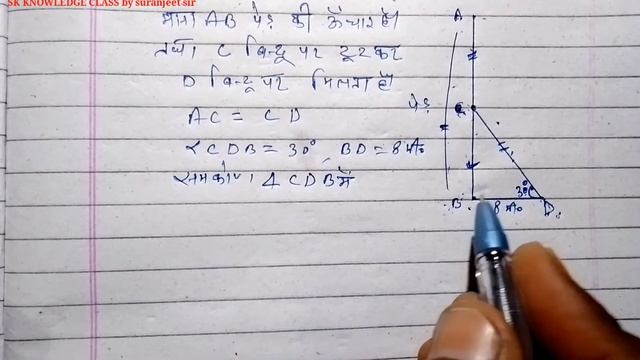 SK KNOWLEDGE CLASS by suranjeet sir
माना AB पेड़ की ऊँचाई है।
तथा C बिन्दू पर टूटकर
D बिन्दू पर मिलता है।
AC = CD
∠CDB = 30°, BD = 8 मी०
समकोण ∆ CDB में
A
पेड़
C
30°
B
8 मी०
D